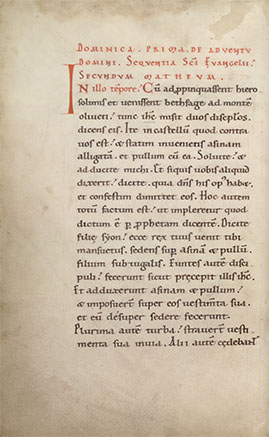 DOMINICA. PRIMA. DE ADVENTU
DOMINI. SEQUENTIA SC̄I EVANGELII.
SECUNDUM MATHEUM.
IN illo tēpore. Cū ad,ppinquassent hiero
solimis et venissent bethfage ad montē
oliveti. tunc ihc̄ misit duos discip̄los
dicens eis. Ite in castellū quod contra
vos est. & statim invenietis asinam
alligatā. et pullum cū ea. Solvite. &
adducite michi. Et siquis vobis aliquid
dixerit. dicite. quia dn̄s his op' habet.
et confestim dimittet eos. Hoc autem
totū factum est. ut impleretur quod
dictum ē p̲ p̲phetam dicentē. Dicite
filię syon. ecce rex tuus venit tibi
mansuetus. sedens sup̲ asinā & pullū
filium subiugalis. Euntes autē disci
puli. fecerunt sicut precepit illis ihc̄.
Et adduxerunt asinam & pullum.
& imposuerꝗ super eos vestim̄ta sua.
et eū desuper sedere fecerunt.
Plurima autē turba. straverꝗ vesti
menta sua in via. Alii autē cędebant